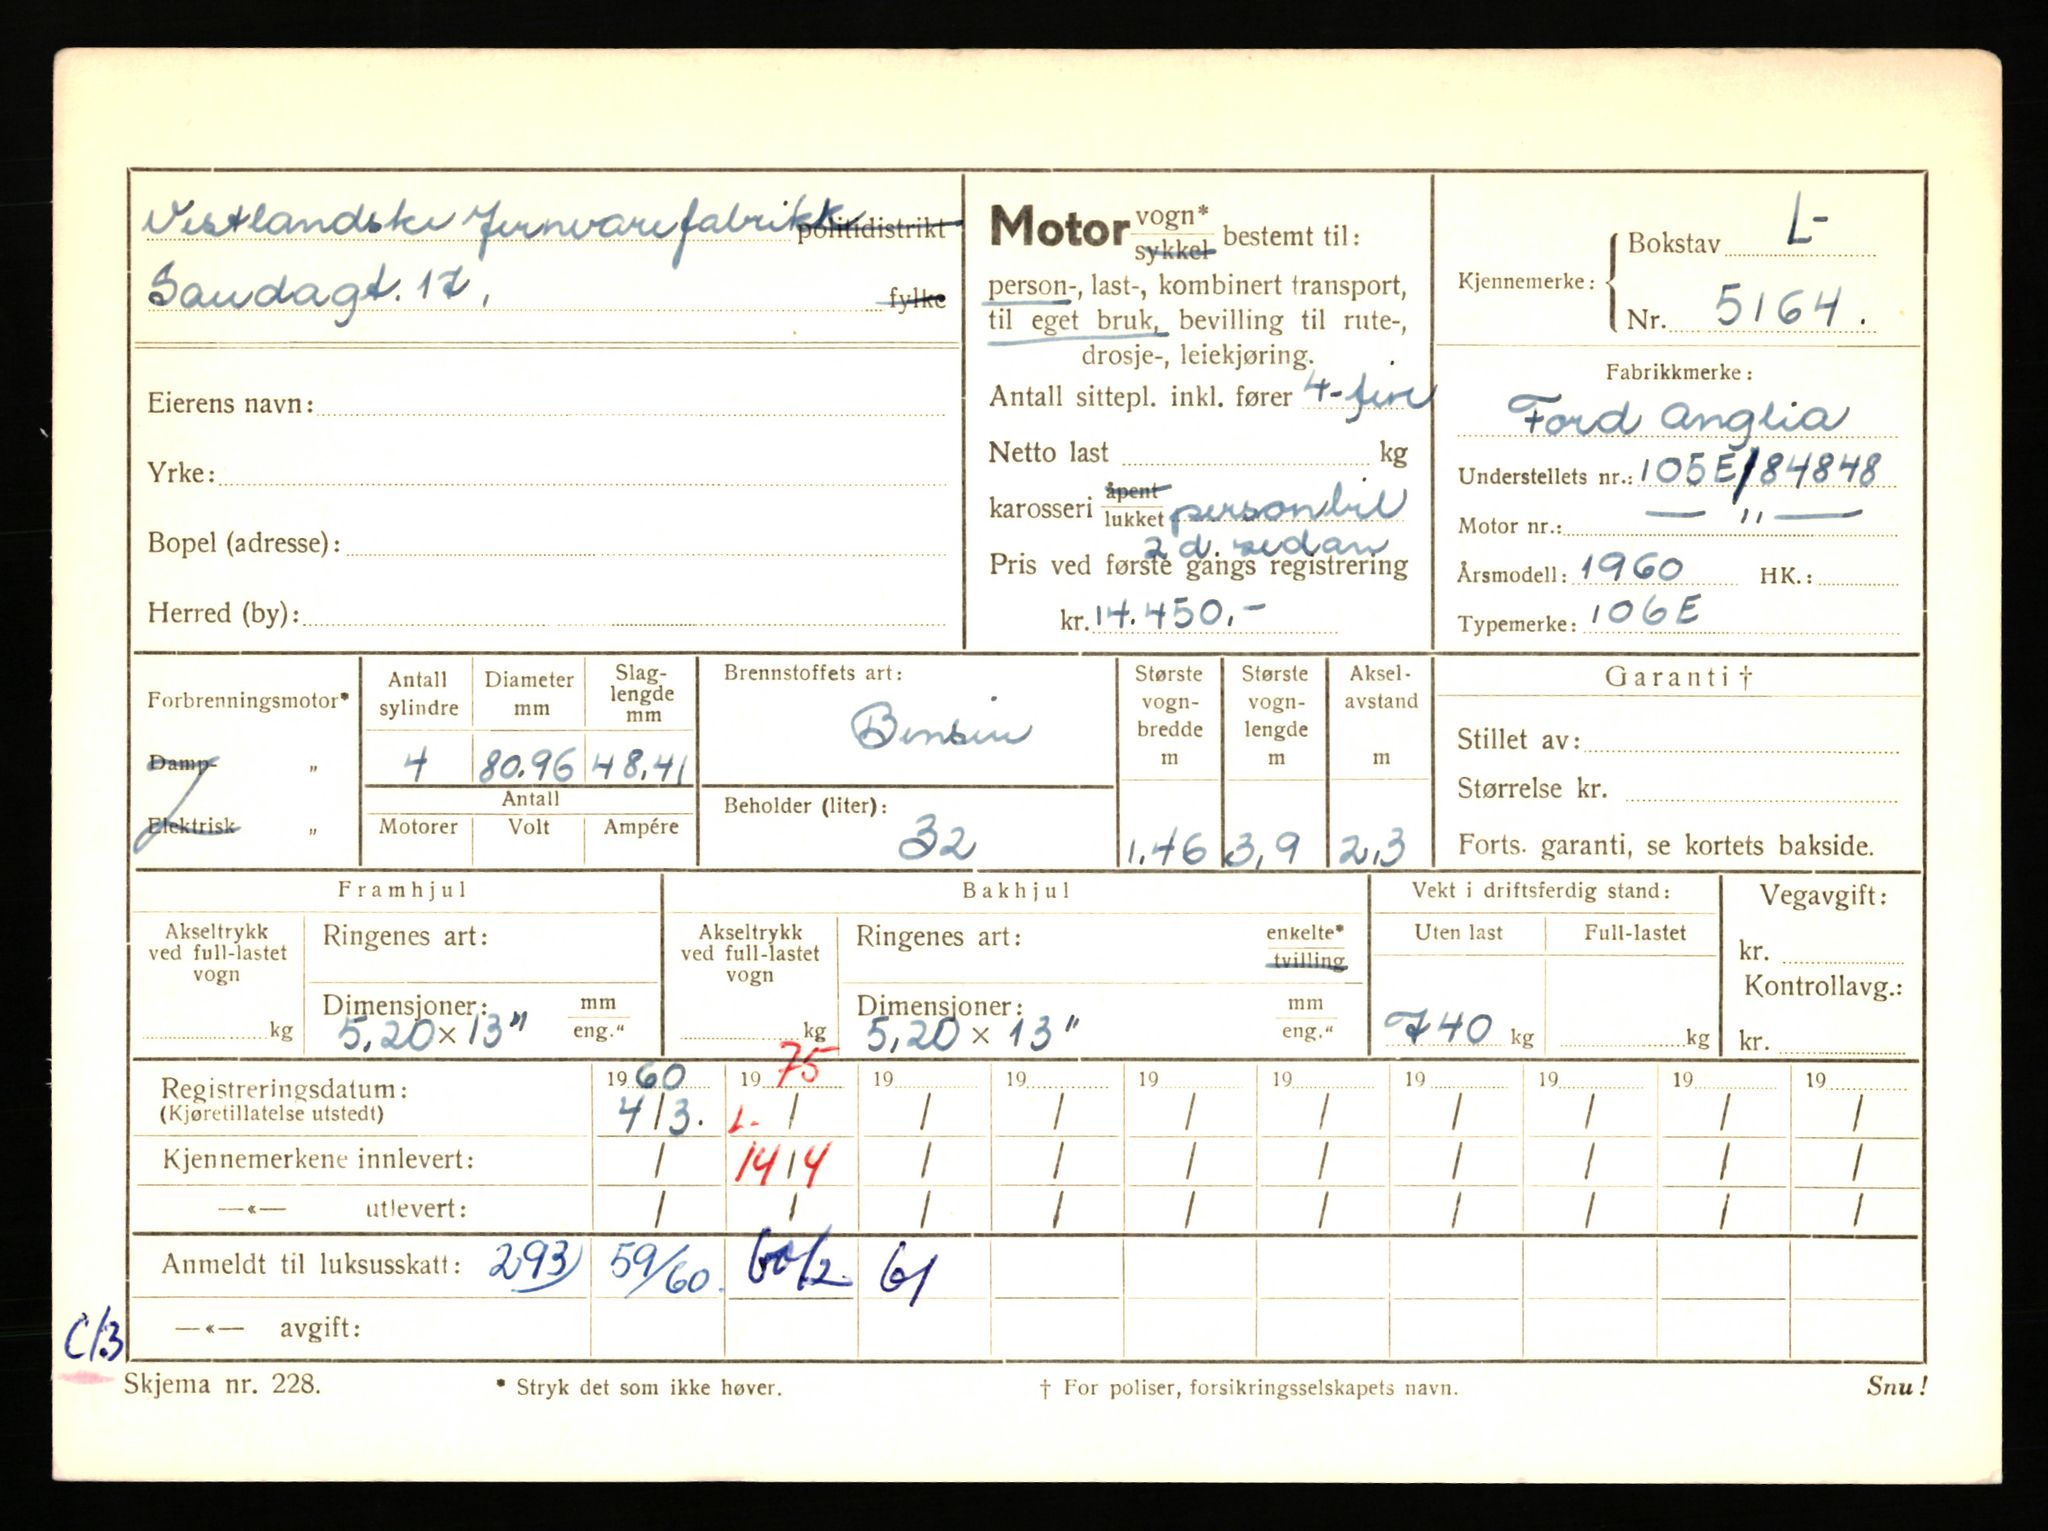 Vestlandske Jernvarefabrikk politidistrikt
Saudagt. 17, fylke
Eierens navn:
Yrke:
Bopel (adresse):
Herred (by):
Motor vogn* sykkel bestemt til:
person-, last-, kombinert transport,
til eget bruk, bevilling til rute-,
drosje-, leiekjøring.
Antall sittepl. inkl. fører 4-fire
Netto last kg
karosseri åpent lukket personbil
2 d. sedan
Pris ved første gangs registrering
kr. 14.450,-
Kjennemerke: Bokstav L-
Nr. 5164.
Fabrikkmerke:
Ford Anglia
Understellets nr.: 105E/84848
Motor nr.: — " —
Årsmodell: 1960 HK.:
Typemerke: 106E
Forbrenningsmotor*
Damp- "
Elektrisk "
Antall sylindre
Diameter mm
Slag-lengde mm
4 80.96 48.41
Antall
Motorer Volt Ampére
Brennstoffets art:
Bensin
Beholder (liter):
32
Største vogn-bredde m
1,46
Største vogn-lengde m
3,9
Aksel-avstand m
2,3
Garanti †
Stillet av:
Størrelse kr.
Forts. garanti, se kortets bakside.
Framhjul
Akseltrykk ved full-lastet vogn
kg
Ringenes art:
Dimensjoner: mm eng."
5,20 x 13"
Bakhjul
Akseltrykk ved full-lastet vogn
kg
Ringenes art: enkelte* tvilling
Dimensjoner: mm eng."
5,20 x 13"
Vekt i driftsferdig stand:
Uten last Full-lastet
740 kg kg
Vegavgift:
kr.
Kontrollavg.:
kr.
Registreringsdatum: 1960 1975 19 19 19 19 19 19 19 19
(Kjøretillatelse utstedt) 4/3. L- / / / / / / / / /
Kjennemerkene innlevert: / 14/4 / / / / / / / /
—«— utlevert: / / / / / / / / / /
Anmeldt til luksusskatt: 293 59/60. 60/2. 61
—«— avgift:
C/3
Skjema nr. 228. * Stryk det som ikke høver. † For poliser, forsikringsselskapets navn. Snu!